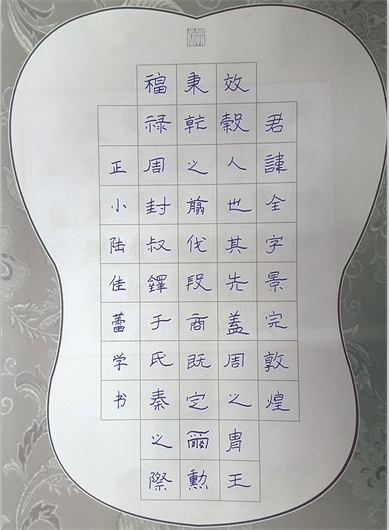 君諱全字景完敦煌
效穀人也其先盖周之胄王
秉乾之翦伐殷商既定爾勳
福祿周封叔鐸于氏秦之際
正小陆佳蕾学书